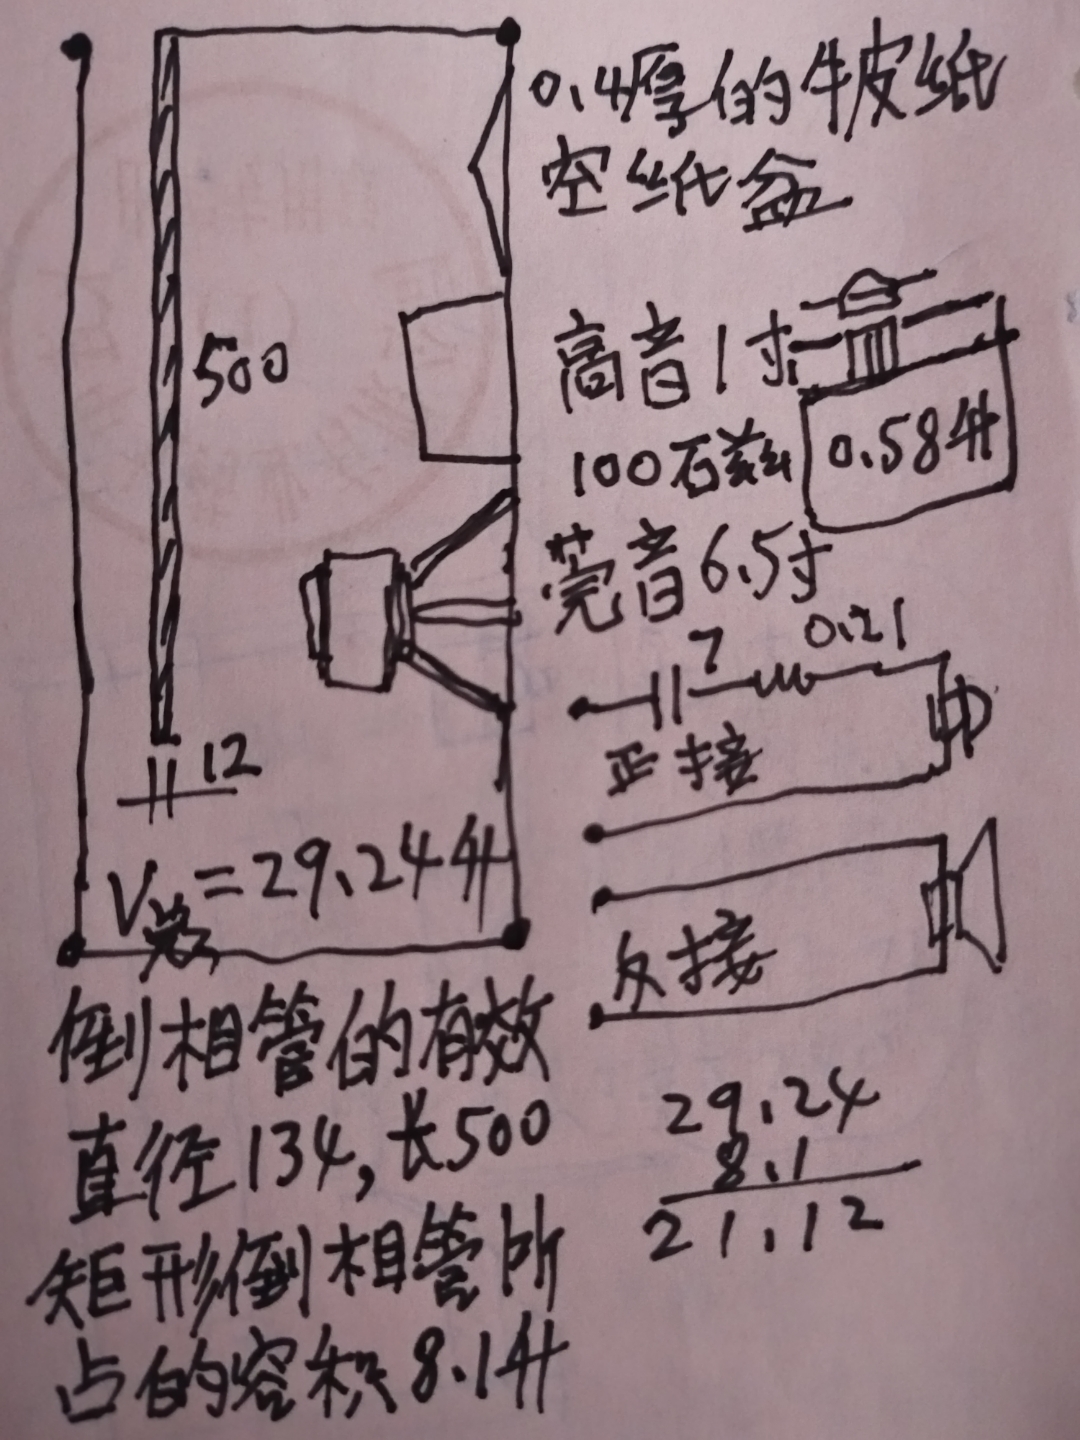 0.4厚的牛皮纸
空纸盆
500
高音1寸
100石兹
0.58升
莞音6.5寸
7
0.21
正接
12
V总=29.24升
反接
倒相管的有效
直径134,长500
矩形倒相管所
占的容积8.1升
29.24
8.1
21.12